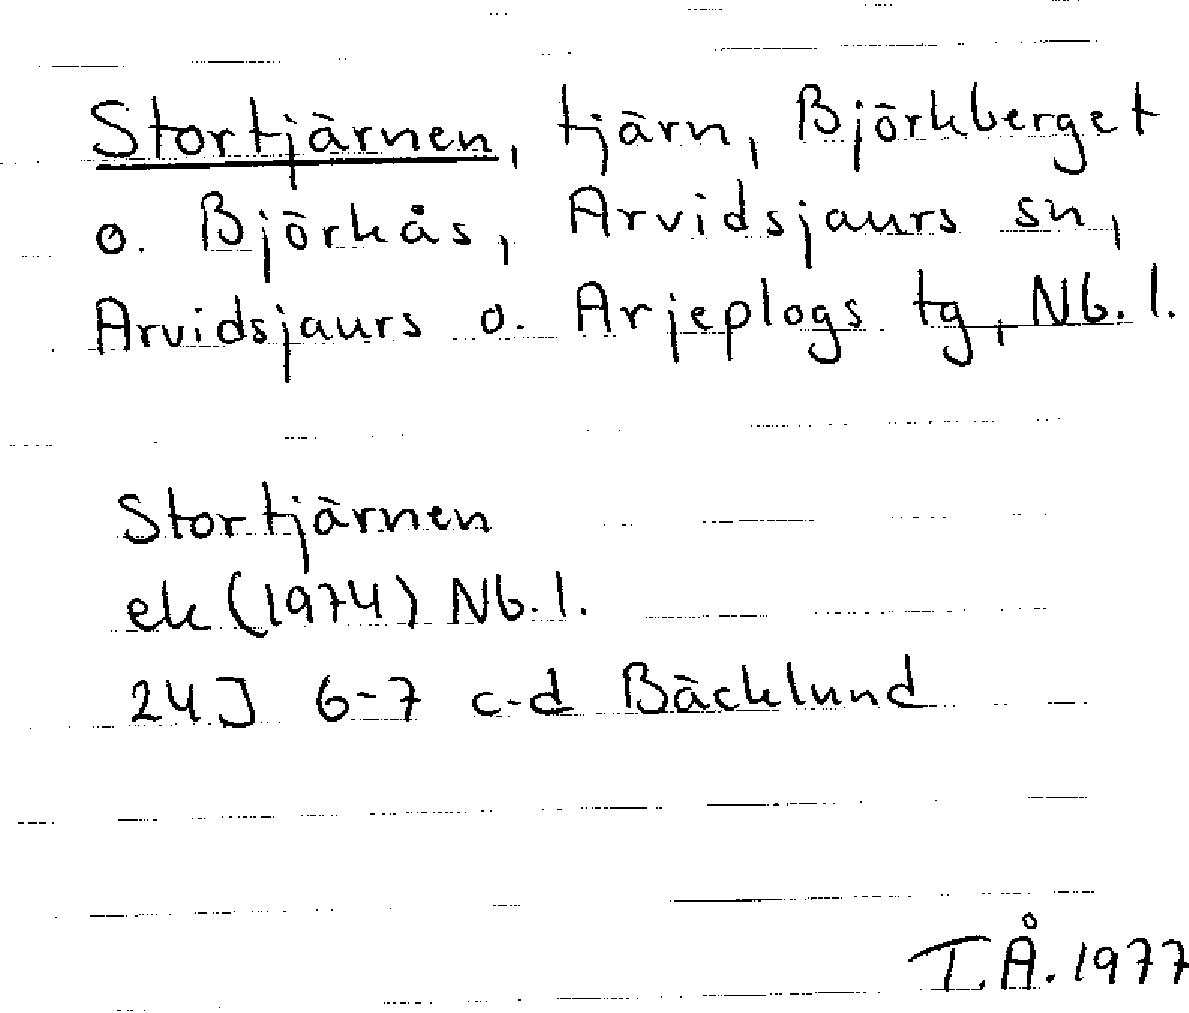 Stortjärnen, tjärn, Björkberget
o. Björkås, Arvidsjaurs sn,
Arvidsjaurs o. Arjeplogs tg, Nb. l.
Stortjärnen
ek (1974) Nb. l.
24J 6-7 c-d Bäcklund
T.Å. 1977